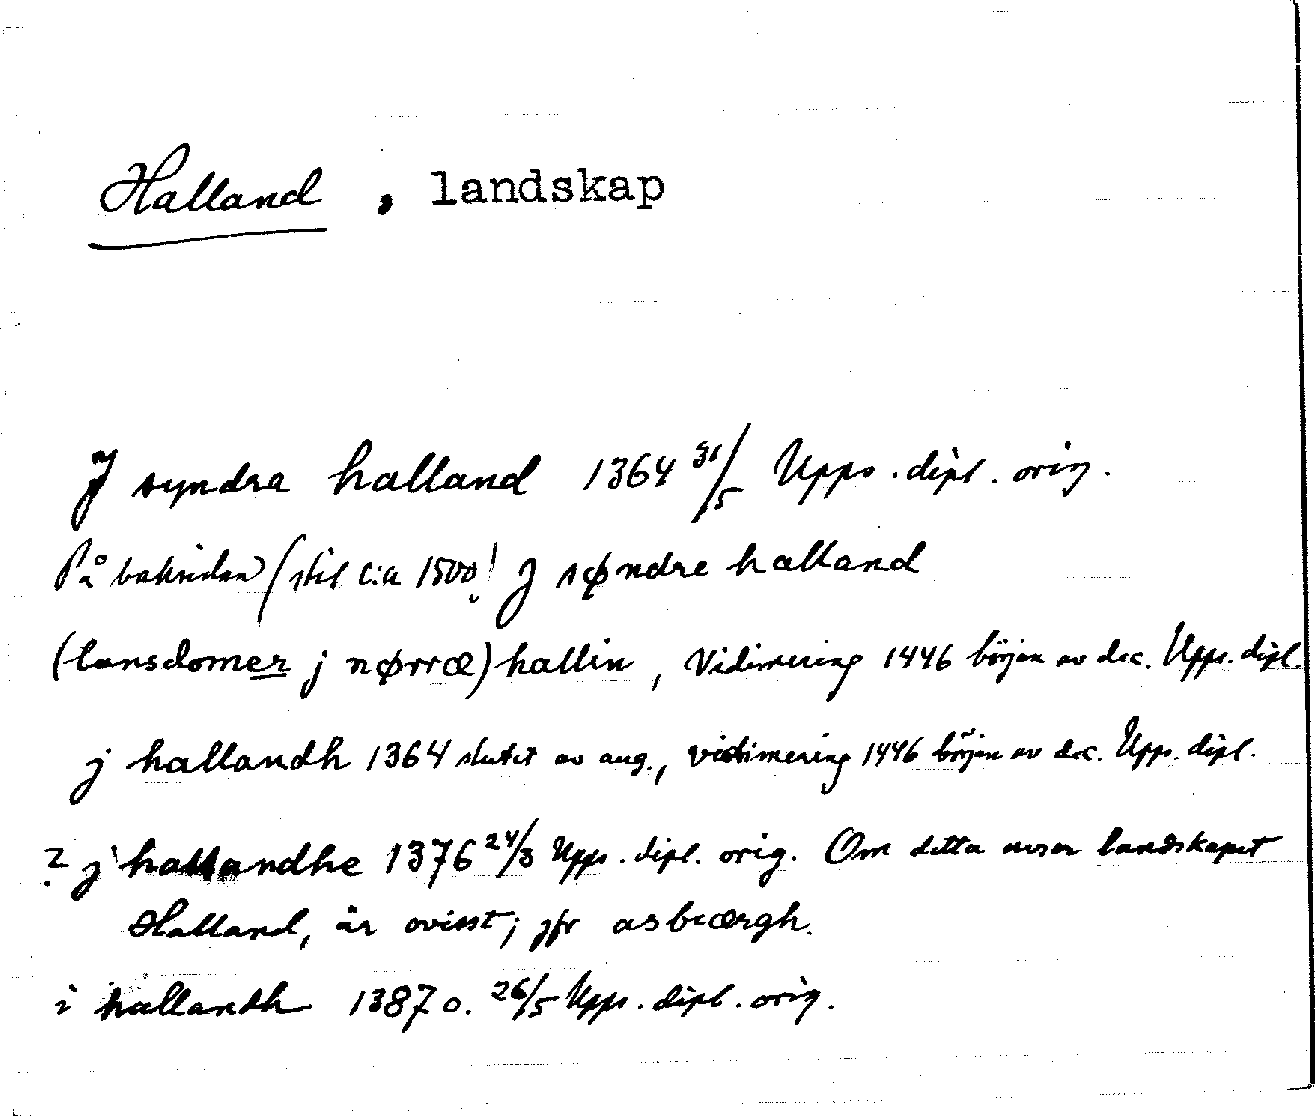 Halland, landskap
J syndra halland 1364 31/5 Upps. dipl. orig.
På baksidan (stil c:a 1500! J søndre halland
(lansdomer j nørræ) hallin, Vidimering 1446 början av dec. Upps. dipl.
j hallandh 1364 slutet av aug., vidimering 1446 början av dec. Upps. dipl.
? j hallandhe 1376 24/3 Upps. dipl. orig. Om detta avser landskapet
Halland, är ovisst; jfr asbærgh.
i hallandh 1387 o. 26/5 Upps. dipl. orig.